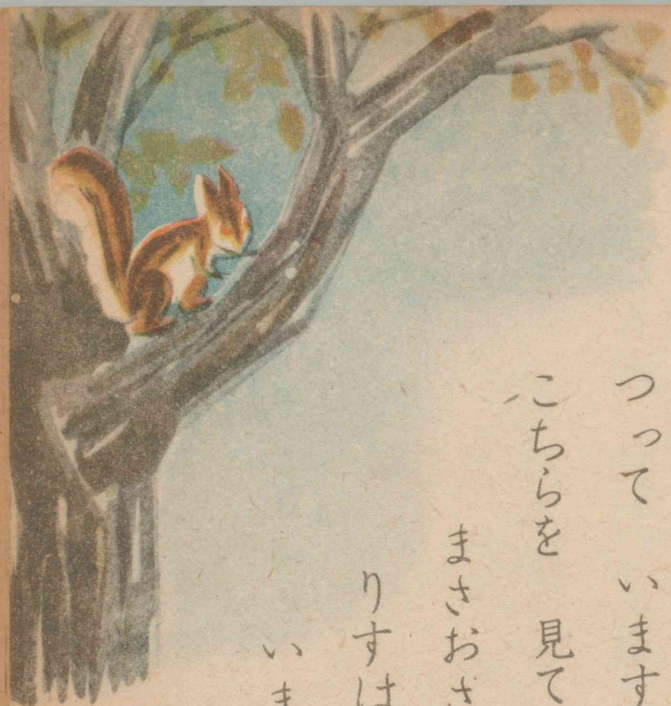 つって います
こちらを 見て
まさおさ
りすは
いま